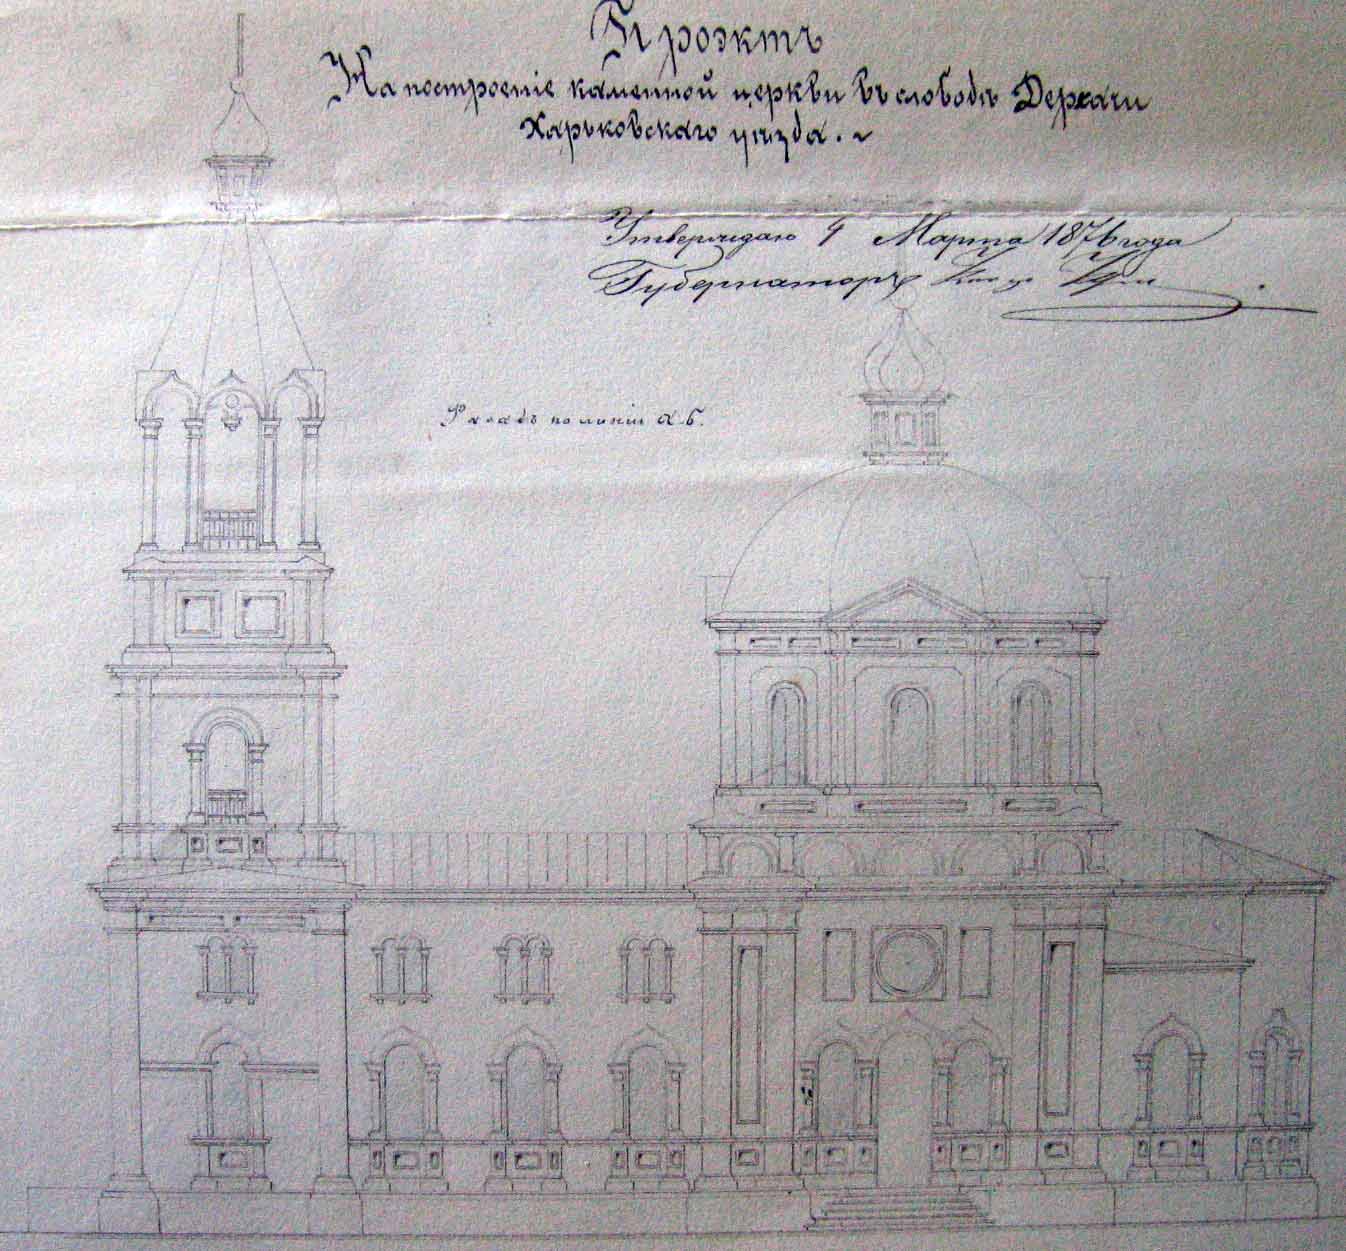 Проэктъ
На построеніе каменной церкви въ слободѣ Деркачи
Харьковскаго уѣзда.
Утверждаю 4 Марта 1876 года
Губернаторъ
по линіи а.б.